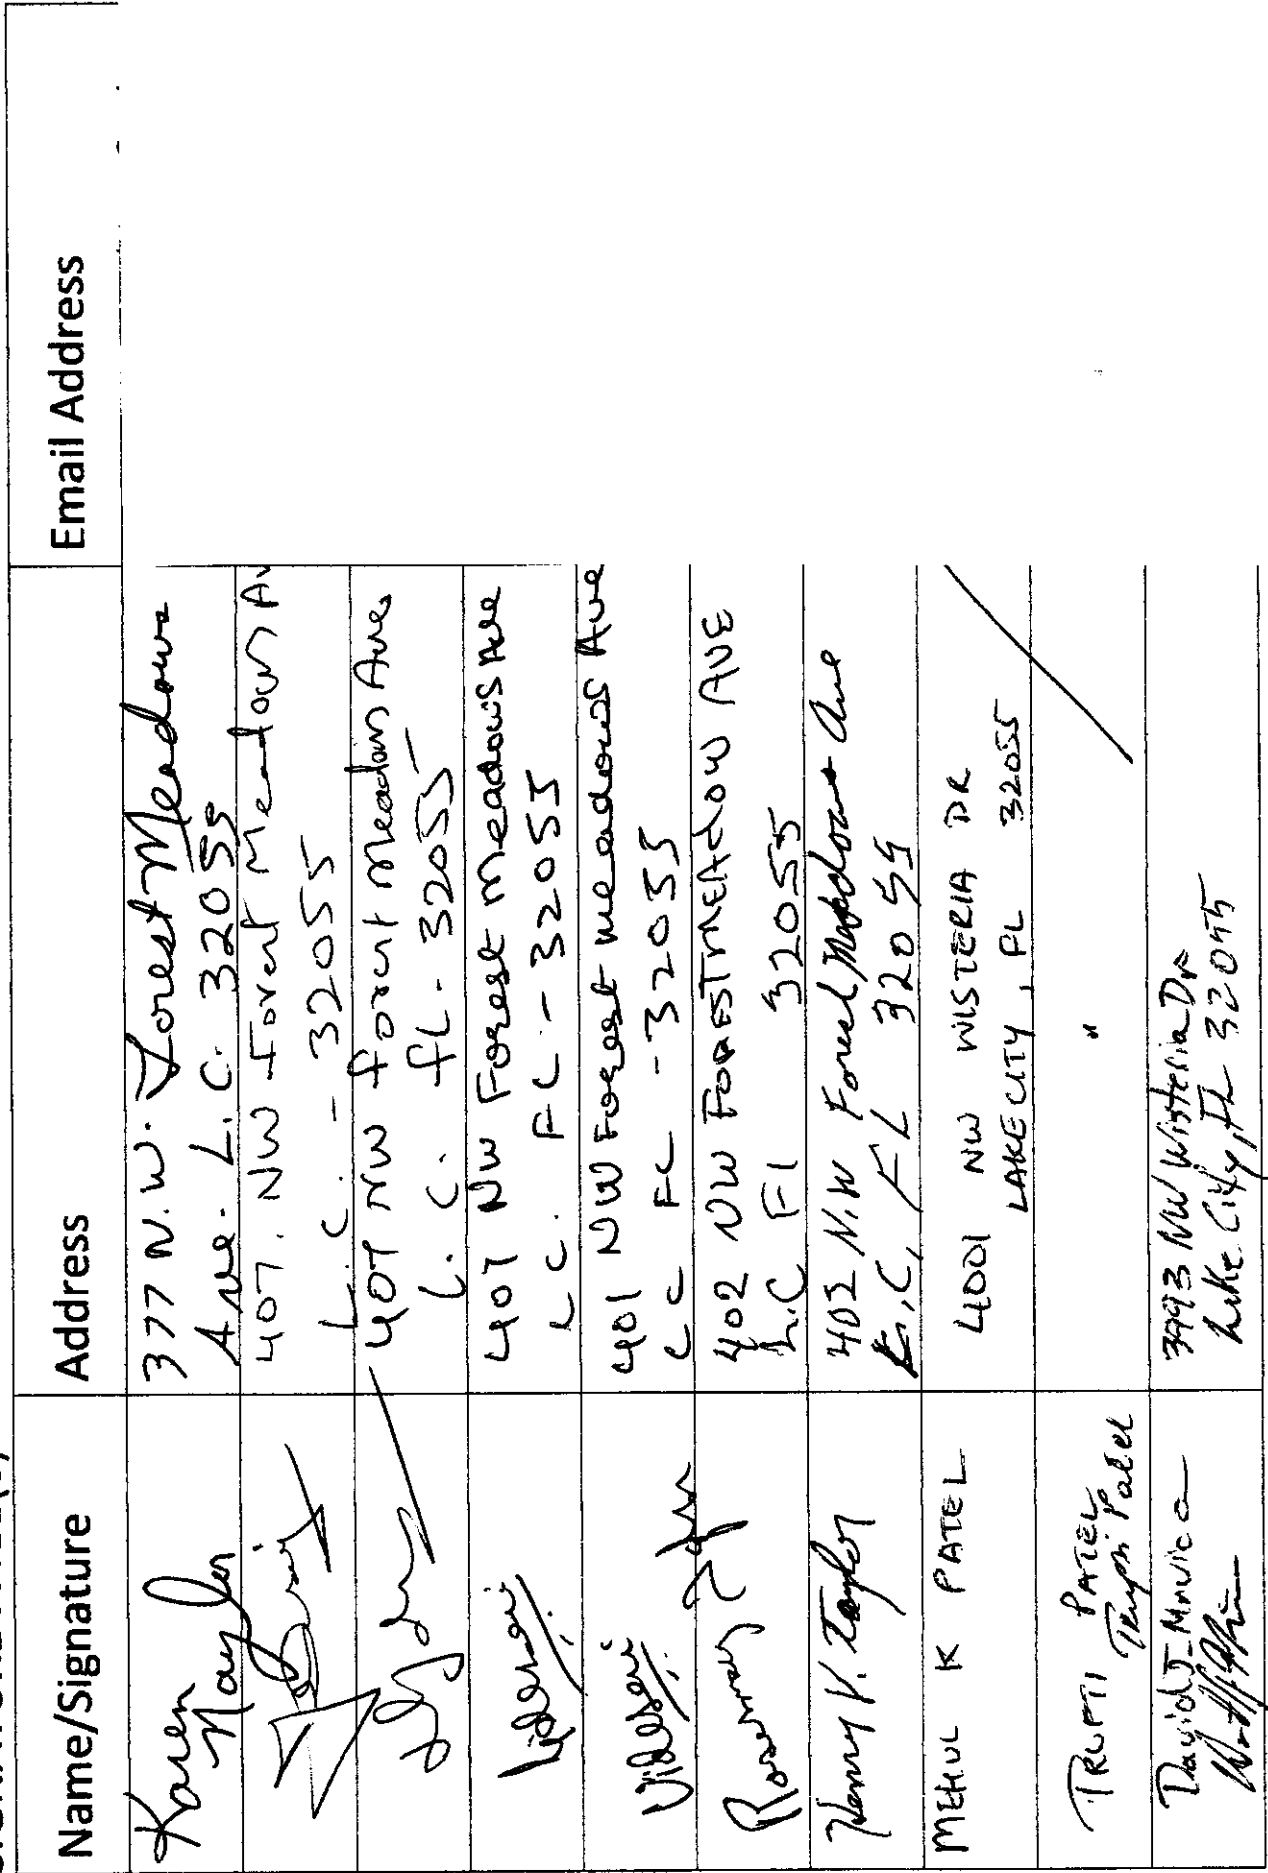 Name/Signature Address Email Address
Karen Naylor 377 N.W. Forest Meadows
Ave. L.C. 32055
407. NW Forest Meadows Av
L.C. - 32055
407 NW Forest Meadows Ave,
L.C. FL - 32055
407 NW Forest Meadows Ave
L.C. FL - 32055
401 NW Forest meadows Ave
L C FL - 32055
Rosemary 402 NW FORESTMEADOW AVE
L.C Fl 32055
Henry V. Taylor 402 N.W Forest Meadows Ave
L.C, FL 32055
MEHUL K PATEL 4001 NW WISTERIA DR
LAKE CITY, FL 32055
TRUPTI PATEL "
Trupti Patel
David J. 3993 NW Wisteria Dr
Lake City, FL 32055